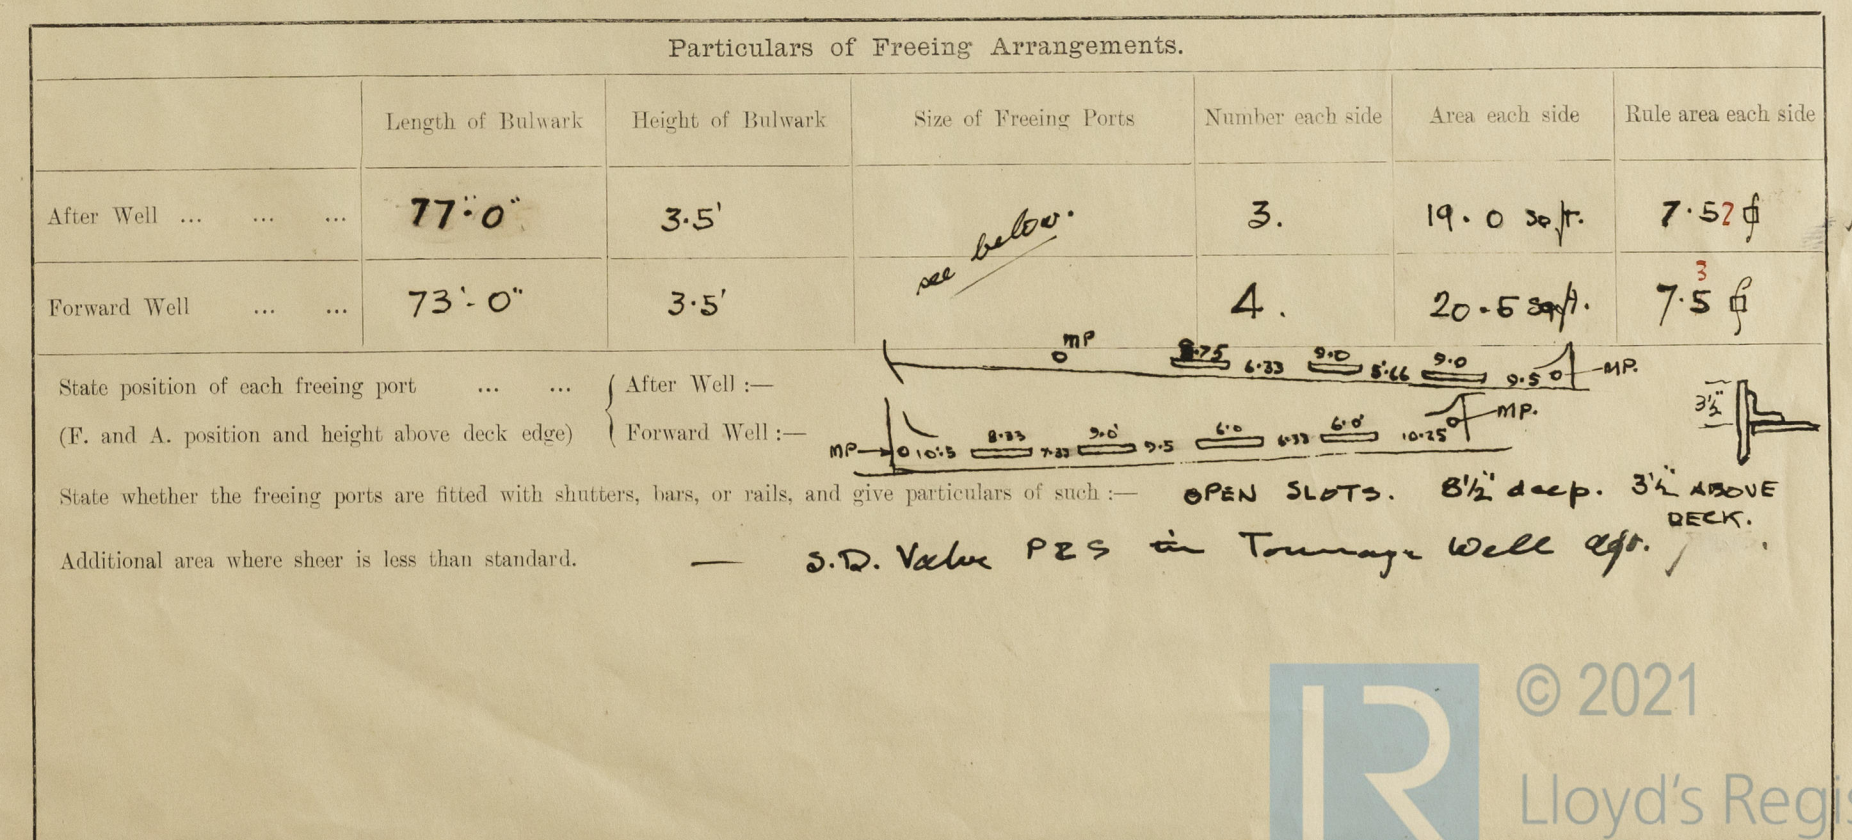 Particulars of Freeing Arrangements.
Length of Bulwark Height of Bulwark Size of Freeing Ports Number each side Area each side Rule area each side
After Well ... ... ... 77'-0" 3.5' see below. 3. 19.0 sq ft. 7.52
Forward Well ... ... 73'-0" 3.5' 4. 20.5 sq ft. 7.5 3
MP 8.75 6.33 9.0 5.66 9.0 9.5 MP.
State position of each freeing port ... ... After Well :—
3½"
(F. and A. position and height above deck edge) Forward Well :—
MP 10.5 8.33 7.33 9.0' 9.5 6.0 6.33 6.0' 10.25 MP.
State whether the freeing ports are fitted with shutters, bars, or rails, and give particulars of such :— OPEN SLOTS. 8½" deep. 3½" ABOVE
DECK.
Additional area where sheer is less than standard. — S.D. Valve P&S in Tonnage Well aft.
© 2021
Lloyd's Regis